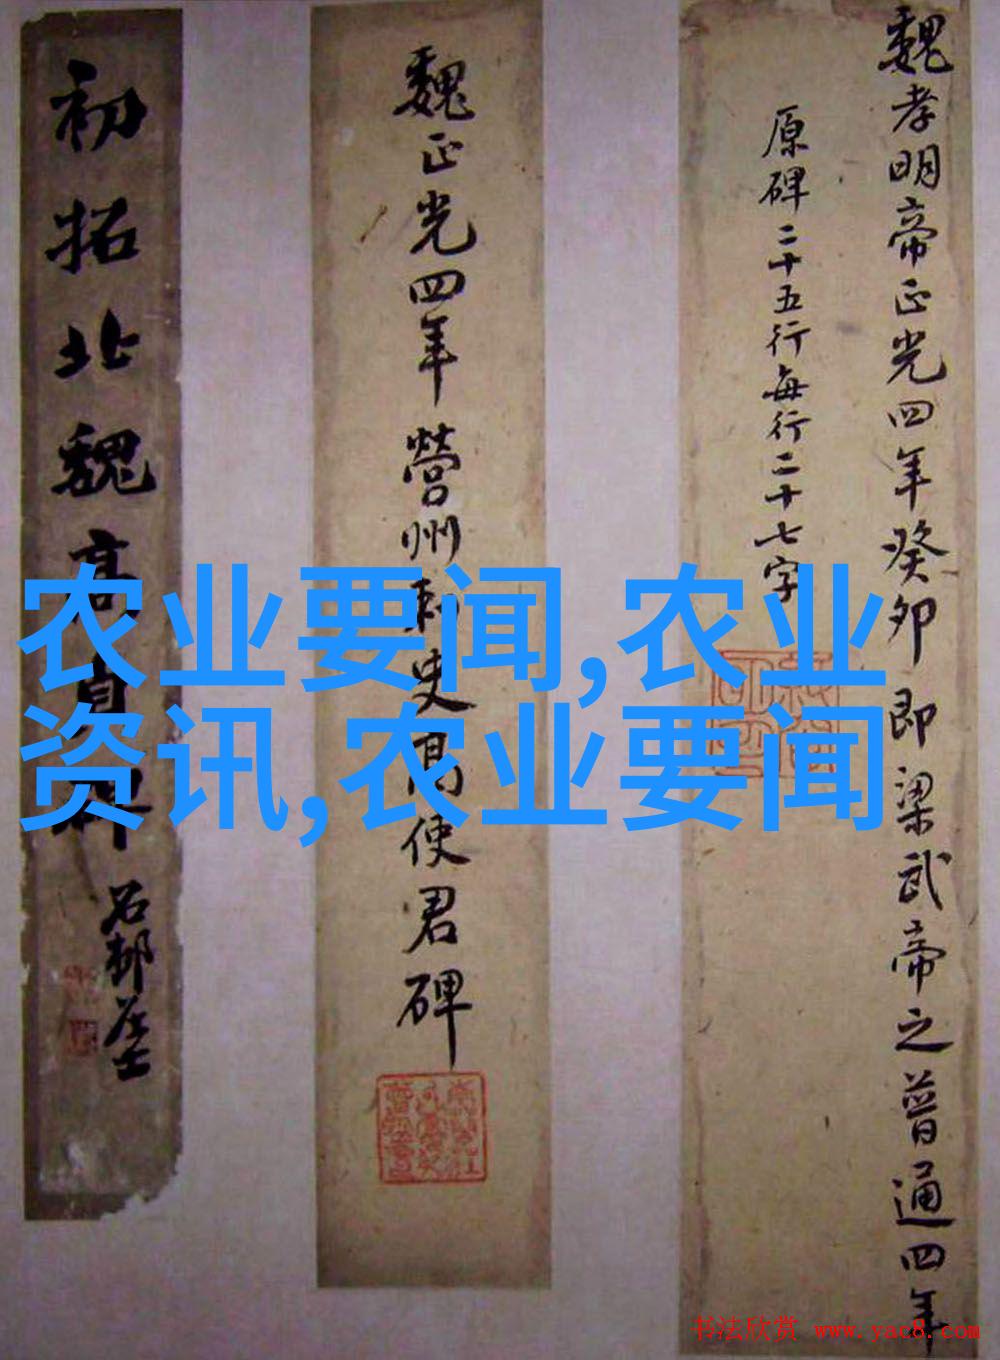 魏孝明帝正光四年癸卯即梁武帝之普通四年
原碑二十五行每行二十七字
魏正光四年營州刺史高使君碑
初拓北魏高貞碑
石邨居士
农业要闻,农业
资讯,农业要闻
书法欣赏 www.yac8.com